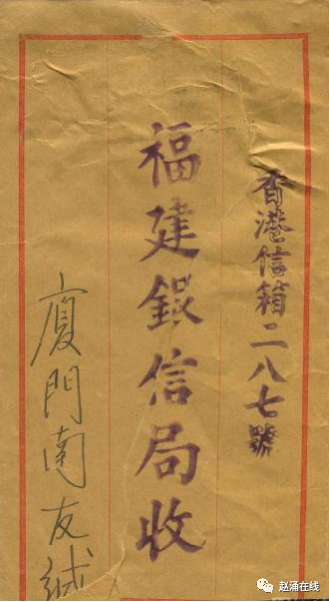 香港信箱二八七號
福建銀信局收
廈門南友緘
赵涌在线